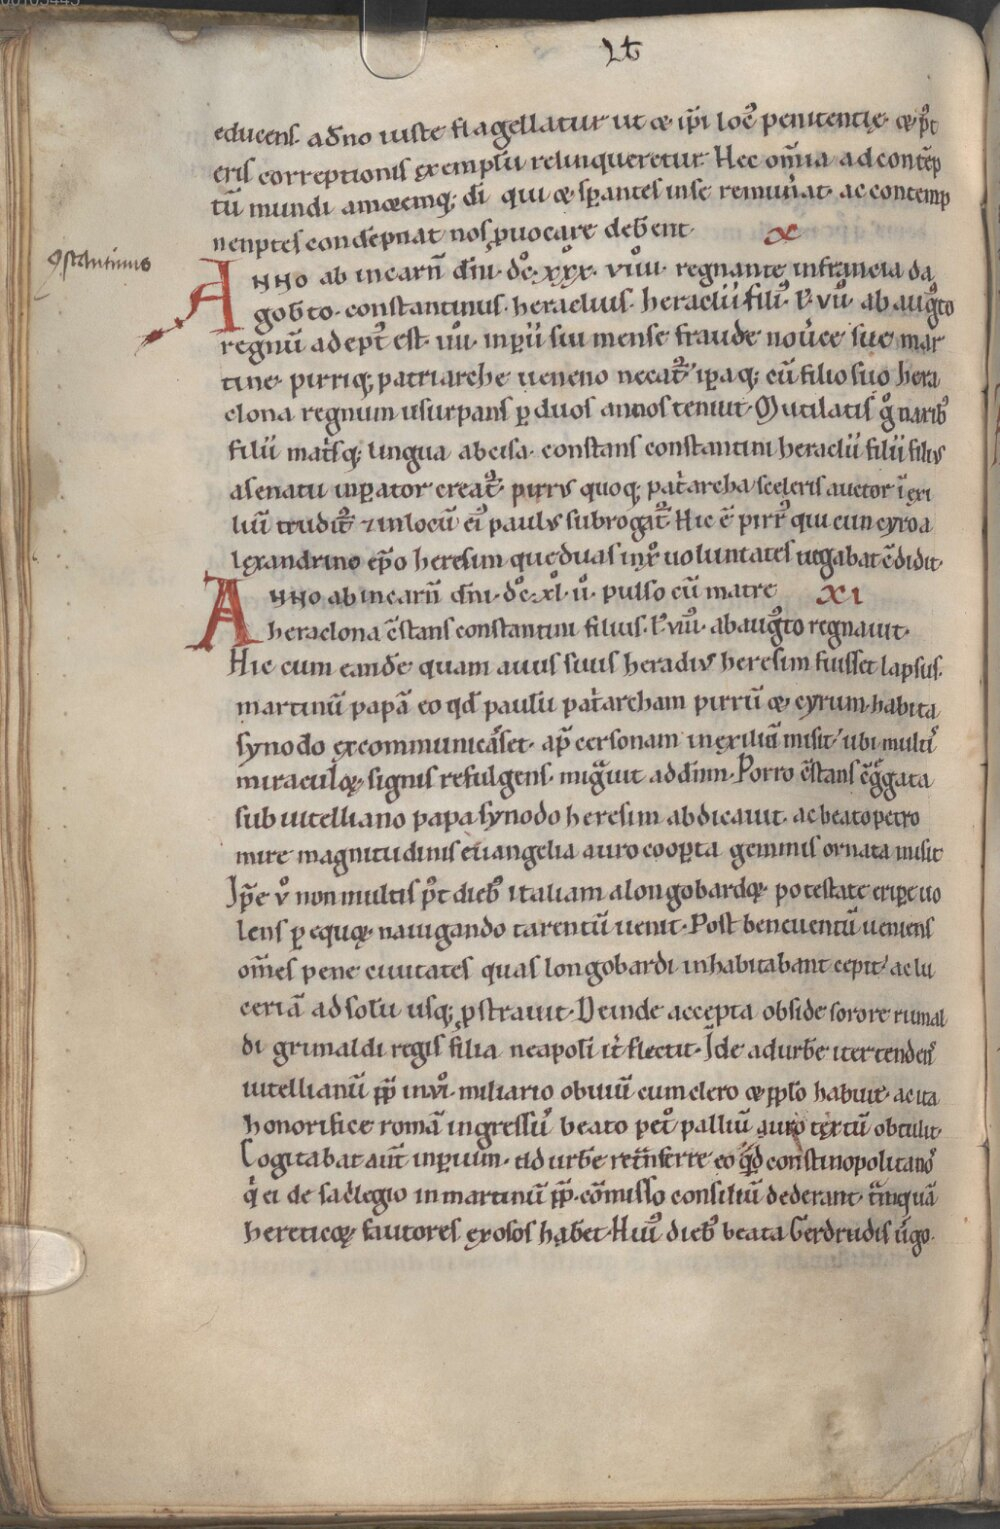 Lt
educens. a dño iuste flagellatur ut & ip̄i locꝰ penitentię. & p̄t
eris correptionis exemplū relinqueretur. Hec om̄ia ad contēp
tū mundi amoremq; dī qui & sp̄antes in se remun̄at. ac contemp
nentes condēpnat nos puocare debent. X
qstantinus
Anno ab incarn̄ dn̄i. dcͦ. xxxͦ. viiiͦ. regnante in francia da
goƀto. constantinus. heraclius. heraclii filiꝰ. lͦ. viiͦ. ab augͦto
regnū adeptꝰ est. iiiiͦ. inp̄ii sui mense fraude nouerce sue mar
tine. pirriq; patriarche ueneno necatꝰ. ip̄aq; cū filio suo hera
clona regnum usurpans p duos annos tenuit. Mutilatis gͦ naribꝰ
filii mat̄sq; lingua abcisa. constans constantini heraclii filii filiꝰ
a senatu inp̄ator creatꝰ. pirrꝰ quoq; pat̄archa sceleris auctor ī exi
liū truditꝰ ⁊ in locū eiꝰ paulꝰ subrogatꝰ. Hic ē pirrꝰ qui cum cyro a
lexandrino ep̄o heresim que duas in xp̄o uoluntates negabat c̄didit.
Anno ab incarn̄ dn̄i. dcͦ. xlͦ. iͦ. pulso cū matre XI
heraclona c̄stans constantini filius. lͦ. viiiͦ. ab augͦto regnauit.
Hic cum eandē quam auus suus heracliꝰ heresim fuisset lapsus.
martinū papā eo qd̄ paulū pat̄archam pirrū & cyrum. habita
synodo excommunicasset. ap̄ cersonam in exiliū misit. ubi multiꝰ
miraculoꝝ. signis refulgens. migᷓuit ad dn̄m. Porro c̄stans c̄gᷓgata
sub uitelliano papa synodo heresim abdicauit. ac beato petro
mire magnitudinis euangelia auro coop̄ta gemmis ornata misit
Ip̄e vͦ non multis pͦt diebꝰ italiam a longobardoꝝ. potestate erip̄e uo
lens p equoꝝ. nauigando tarentū uenit. Post beneuentū ueniens
om̄es pene ciuitates quas longobardi inhabitabant cepit. ac lu
ceriā ad solū usq; pstrauit. Deinde accepta obside sorore rumal
di grimaldi regis filia neapolī it̄ flectit. Īde ad urbē iter tendenſ
uitellianū pp̄ in viͦ. miliario obuiū cum clero & pplo habuit. ac ita
honorifice romā ingressuſ beato petͦ palliū auro textū obtulit.
Cogitabat aut̄ inp̄ium. ad urbē ret̄nsferre eo qd̄ constinopolitanoſ
qͥ ei de sac̄legio in martinū pp̄. cōmisso consiliū dederant. tᷓmquā
hereticoꝝ fautores exosos habet. Hiiꝰ diebꝰ beata Gerdrudis uͥgo.